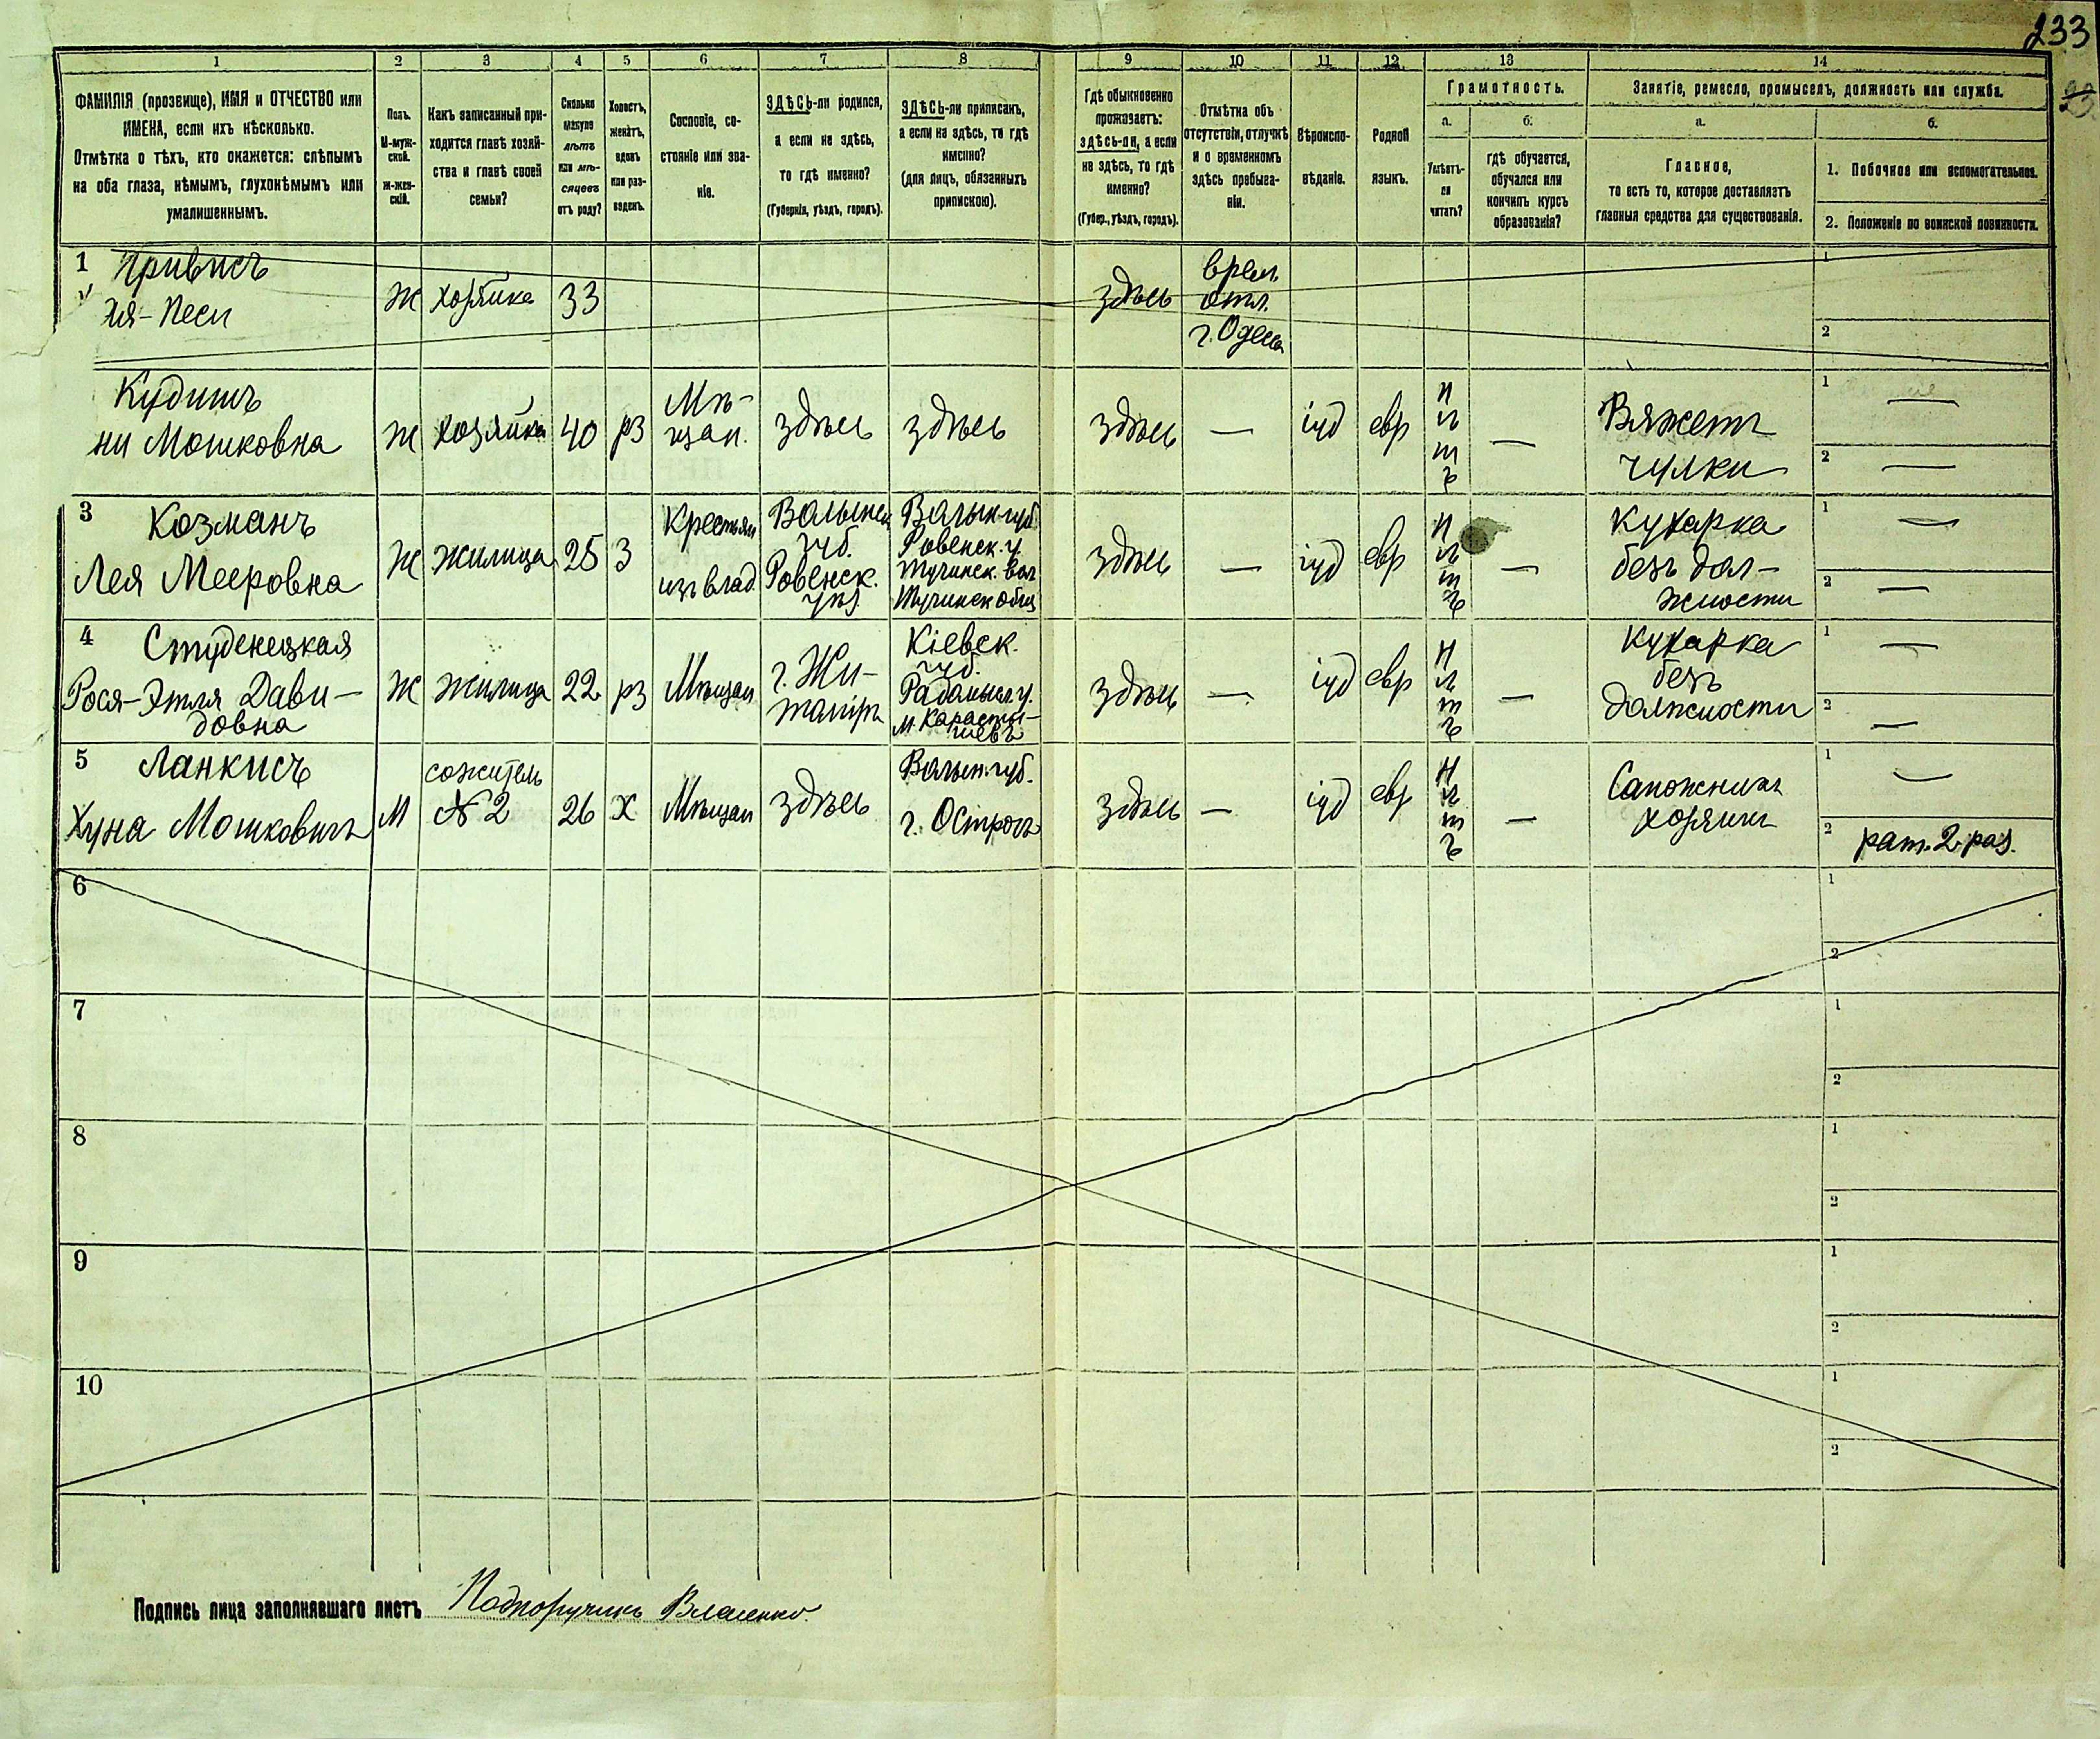 233
23
1 2 3 4 5 6 7 8 9 10 11 12 13 14
ФАМИЛІЯ (прозвище), ИМЯ и ОТЧЕСТВО или
ИМЕНА, если ихъ нѣсколько.
Отмѣтка о тѣхъ, кто окажется: слѣпымъ
на оба глаза, нѣмымъ, глухонѣмымъ или
умалишеннымъ.
Полъ.
М-муж-
ской.
Ж-жен-
скій.
Какъ записанный при-
ходится главѣ хозяй-
ства и главѣ своей
семьи?
Сколько
минуло
лѣтъ
или мѣ-
сяцевъ
отъ роду?
Холостъ,
женатъ,
вдовъ
или раз-
веденъ.
Сословіе, со-
стояніе или зва-
ніе.
ЗДѢСЬ-ли родился,
а если не здѣсь,
то гдѣ именно?
(Губернія, уѣздъ, городъ).
ЗДѢСЬ-ли приписанъ,
а если не здѣсь, то гдѣ
именно?
(для лицъ, обязанныхъ
припискою).
Гдѣ обыкновенно
проживаетъ:
здѣсь-ли, а если
не здѣсь, то гдѣ
именно?
(Губер., уѣздъ, городъ).
Отмѣтка объ
отсутствіи, отлучкѣ
и о временномъ
здѣсь пребыва-
ніи.
Вѣроиспо-
вѣданіе.
Родной
языкъ.
Грамотность.
а.
Умѣетъ-
ли
читать?
б.
гдѣ обучается,
обучался или
кончилъ курсъ
образованія?
Занятіе, ремесло, промыселъ, должность или служба.
а.
Главное,
то есть то, которое доставляетъ
главныя средства для существованія.
б.
1. Побочное или вспомогательное.
2. Положеніе по воинской повинности.
1 Привисъ
Эя-Песи
ж
хозяйка
33
здѣсь
врем.
отл.
г. Одесса
1
2
Кудишъ
ни Мошковна
ж
хозяйка
40
рз
Мѣ-
щан.
здѣсь
здѣсь
здѣсь
—
іуд
евр
н
ѣ
т
ъ
—
Вяжетъ
чулки
1 —
2 —
3 Козманъ
Лея Мееровна
ж
жилица
25
З
Крестьян
изъ влад.
Волынск
губ.
Ровенск.
уѣз.
Волын губ.
Ровенск. у.
Тучинск. вол
Тучинск общ
здѣсь
іуд
евр
н
ѣ
т
ъ
—
Кухарка
безъ дол-
жности
1 —
2 —
4 Студенецкая
Рося-Этля Дави-
довна
ж
жилица
22
рз
Мѣщан
г. Жи-
томіръ
Кіевск.
губ.
Радомысл. у.
м. Карасты-
шевъ
здѣсь
—
іуд
евр
н
ѣ
т
ъ
—
Кухарка
безъ
должности
1 —
2 —
5 Ланкисъ
Хуна Мошковичъ
М
сожитель
№ 2
26
Х
Мѣщан
здѣсь
Волын. губ.
г. Острогъ
здѣсь
—
іуд
евр
н
ѣ
т
ъ
—
Сапожникъ
хозяинъ
1 —
2 рат. 2 раз.
6
1
2
7
1
2
8
1
2
9
1
2
10
1
2
Подпись лица заполнявшаго листъ Подпоручикъ Власенко